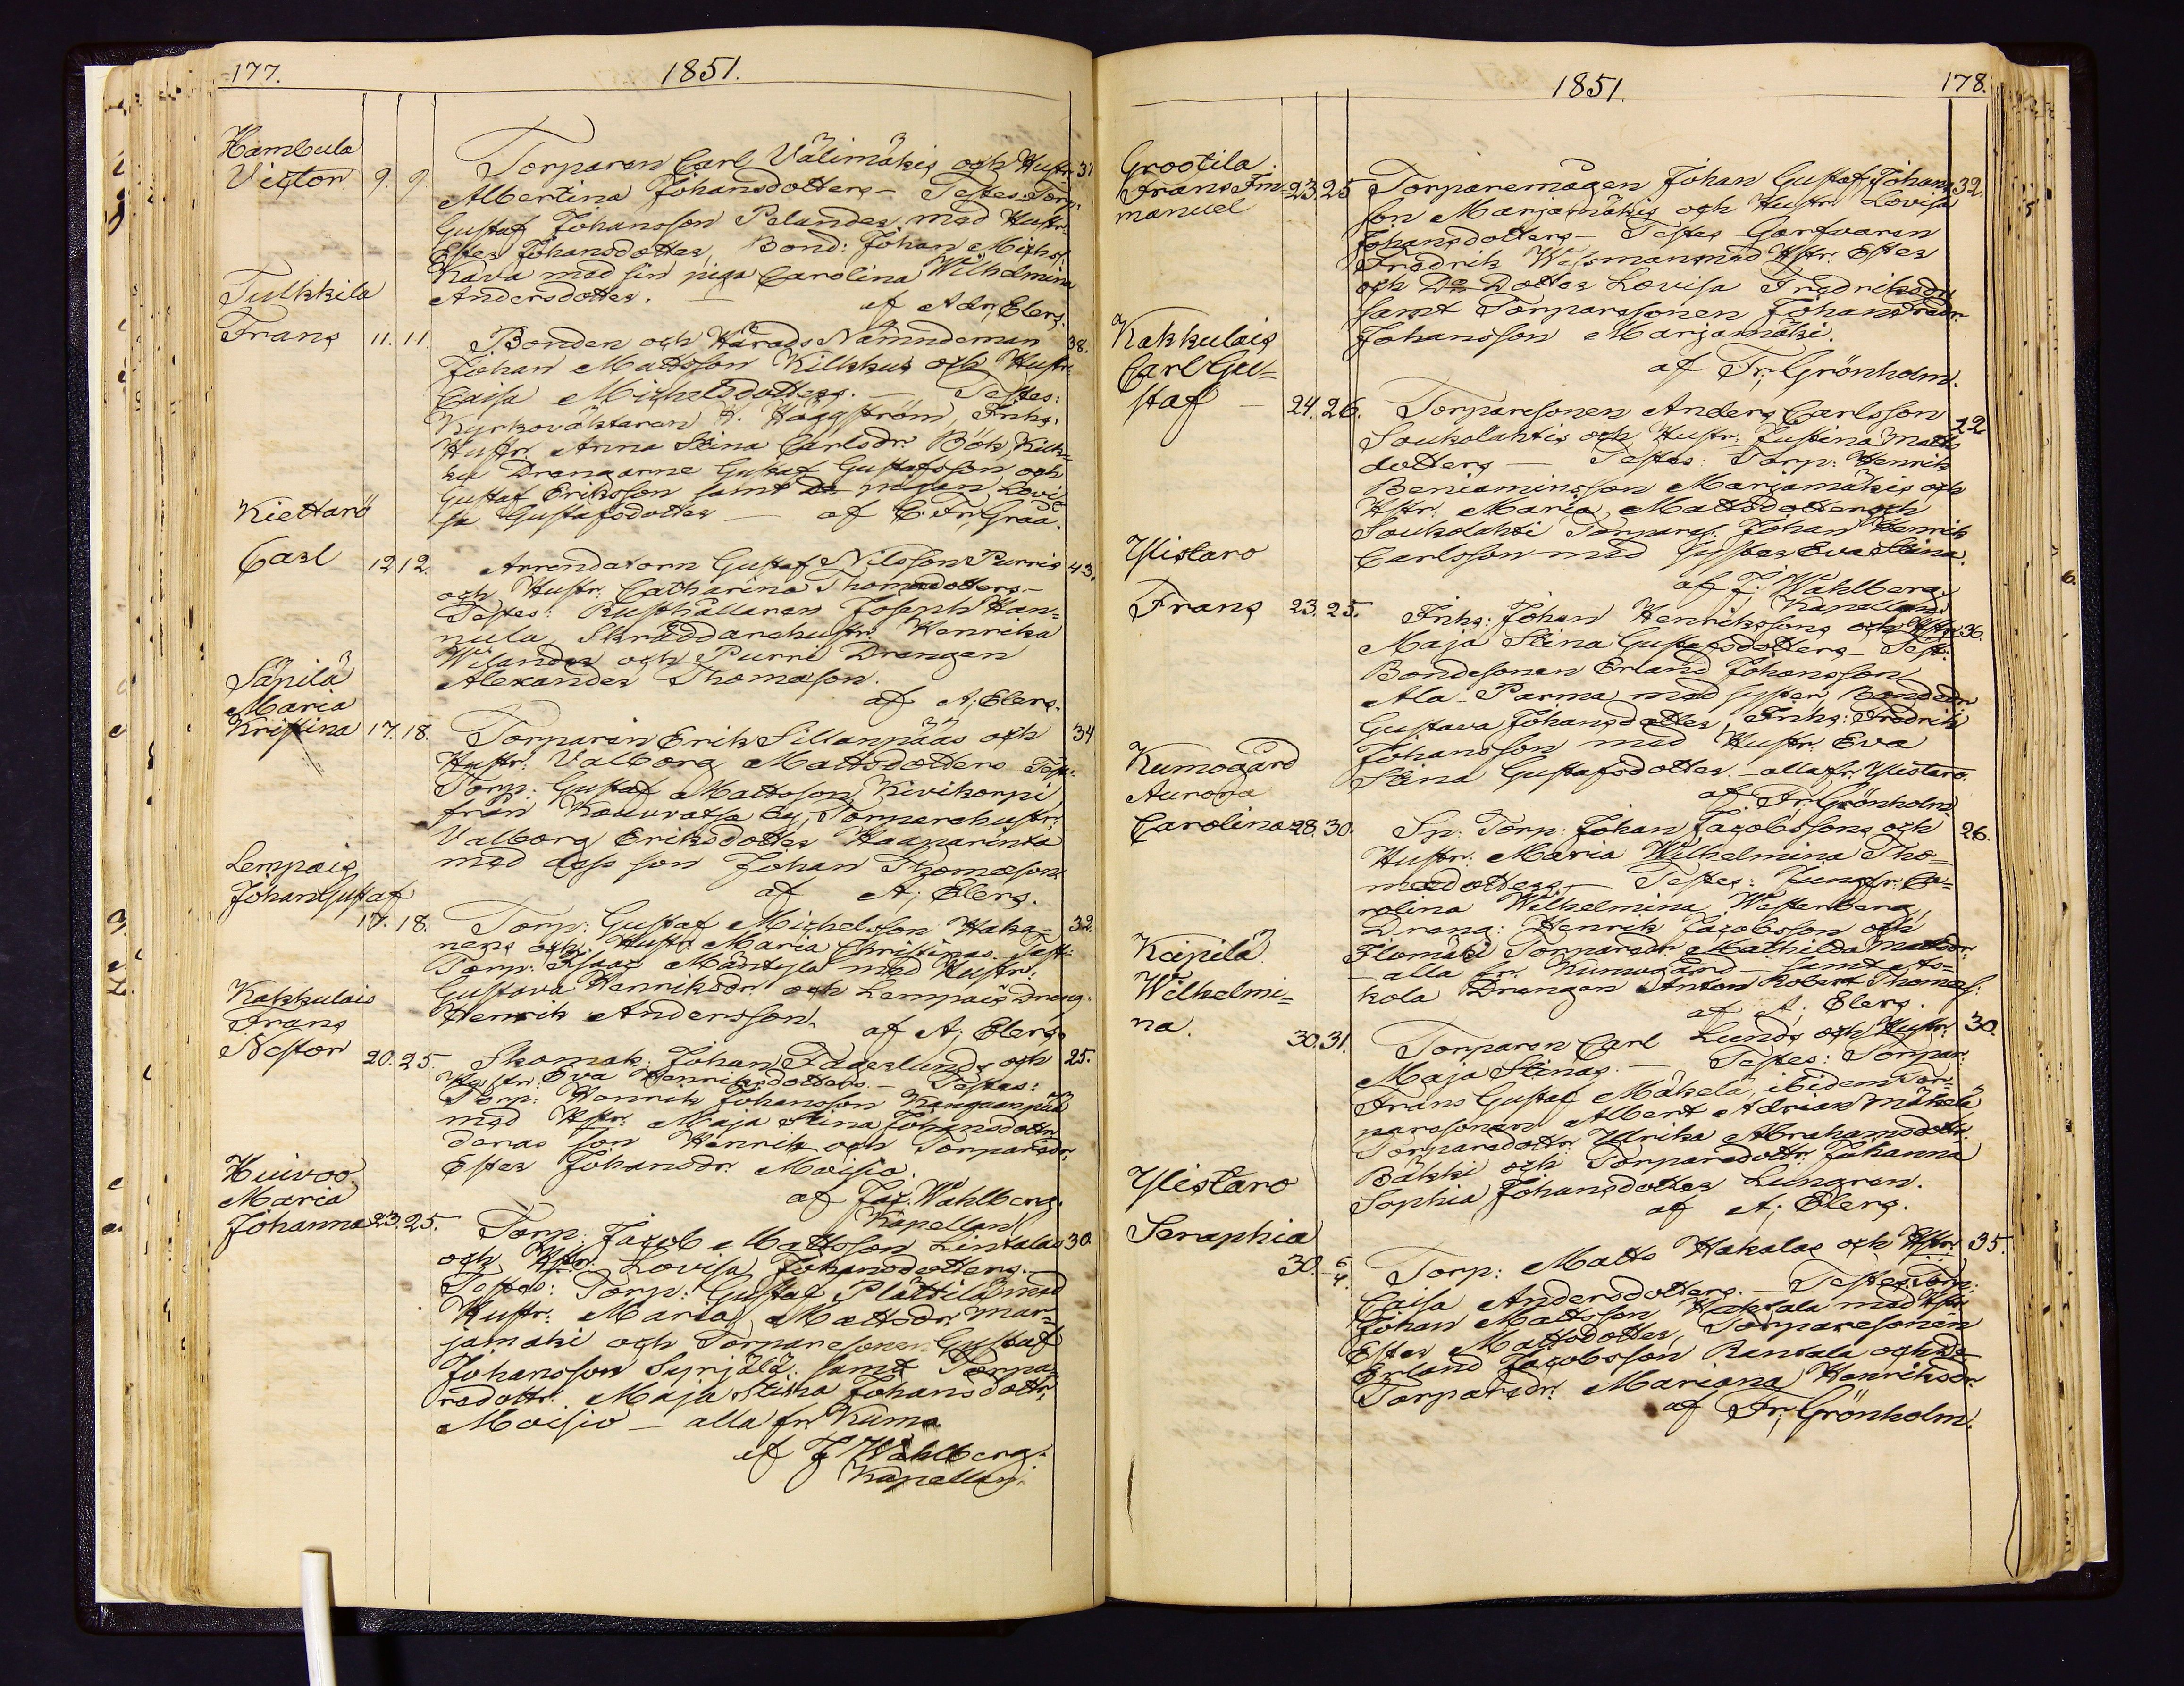 177.
1851.
Hambula
Victor 9. 9. Torparen Carl Välimäkis och Hustr. 31
Albertina Johansdotters - Testes: Torp.
Gustaf Johansson Pelander med Hustr.
Ester Johansdotter, Bond: Johan Michelss.
Kara med sin piga Carolina Wilhelmina
Andersdotter. — af Adr; Elers.
Tulkkila
Frans 11. 11. Bonden och Härads Nämndeman 38.
Johan Mattsson Kilkkus och Hustr.
Caisa Michelsdotters. — Testes:
Kyrkoväktaren H. Häggström, Inhs.
Hustr. Anna Stina Carlsdr Böök, Kilk=
ku Drengarne Gustaf Gustafsson och
Gustaf Eriksson samt do pigan Lovi=
sa Gustafsdotter — af C. Fr; Graa.
Kiettarö
Carl 12 12. Arrendatorn Gustaf Nilsson Purris 43.
och Hustr. Catharina Thomædotters -
Testes: Rusthållaren Joseph Han=
nula, Skräddarehustr. Henrika
Wilander och Purri Drengen
Alexander Thomæson.
af A; Elers.
Säpilä
Maria
Kristina 17. 18. Torparen Erik Sillanpääs och 34
Hustr. Valborg Mattsdotters Test:
Torp: Gustaf Mattsson Kivikorpi
från Kauvatsa by; Torparehustr.
Valborg Eriksdotter Haaparinta
med dess son Johan Thomæson.
af A; Elers.
Lempais
Johan Gustaf
17. 18. Torp: Gustaf Michelsson Haka= 32.
nens och Hustr. Maria Christinas. Test:
Torp: Isaac Mäntysa med Hustr.
Gustava Henriksdr och Lempais Dreng.
Henrik Andersson.
af A; Elers.
Kakkulais
Frans
Nestor 20. 25. Skomak: Johan Fagerlunds och 25.
Hustr: Eva Henriksdotters. — Testes:
Torp: Henrik Johansson Kangaanpää
med Hstr. Maja Stina Johansdottr
deras son Henrik och Torparedr.
Ester Johansdr Moisio.
af Jac; Wahlberg.
Kapellan
Huivoo.
Maria
Johanna 23. 25. Torp: Jacob Mattsson Lintalas 30
och Hstr. Lovisa Johansdotters. —
Testes: Torp: Gustaf Plättilä med
Hustr. Maria Mattsdr Mar=
jamäki och Torparesonen Gustaf
Johansson Syrjälä, samt Torpa=
redottr. Maja Stina Johansdottr.
Moisio — alla fr. Kumo.
af J Wahlberg.
Kapellan.
1851.
178.
Grootila.
Frans Im= 23. 25 Torparemågen Johan Gustaf Johans 32.
manuel son Marjamäkis och Hustr. Lovisa
Johansdotters - Testes Garfvaren
Fredrik Wessman med Hstr. Ester
och Do Dotter Lovisa Fredriksdr
samt Torparesonen Johan Fredr.
Johansson Marjamäki.
af Fr; Grönholm.
Kakkulais
Carl Gu=
staf — 24. 26. Torparesonen Anders Carlsson 22
Soukolahtis och Hustr. Justina Matts
dotters — Testes: Torp: Henrik
Beniaminsson Marjamäkis och
Hstr. Maria Mattsdotter och
Soukolahti Torpares. Johan Henrik
Carlsson med Syster Eva Stina.
af J. Wahlberg.
Kapellan.
Ylistaro
Frans 23. 25. Inhs: Johan Henrikssons och Hstr. 36.
Maja Stina Gustafsdotters - Test:
Bondesonen Erland Johansson
Ala-Parma med syster, Bondedr
Gustava Johansdotter, Inhs: Fredrik
Johansson med Hustr. Eva
Stina Gustafsdotter. — alla fr. Ylistaro.
af Fr; Grönholm.
Kumogård
Aurora
Carolina 28. 30. Sp. Torp: Johan Jacobssons och 26.
Hustr. Maria Wilhelmina Tho=
mædotters. — Testes: Jungfr. Ca=
rolina Wilhelmina Westerberg,
Dreng: Henrik Jacobsson och
Ilomäki Torparedr. Mathilda Mattsdr.
— alla fr. Kumogård — samt Ato=
kola Drengen Anton Robert Thomæs:
af A; Elers.
Käpilä.
Wilhelmi=
na. 30. 31. Torparen Carl Lunds och Hustr. 30.
Maja Stinas. — Testes: Torpar:
Frans Gustaf Mäkelä, ibidem Tor=
paresonen Albert Adrian Mäkelä
Torparedottr. Ulrika Abrahamsdottr.
Bäkki och Torparedottr. Johanna
Sophia Johansdotter Lungren.
af A; Elers.
Ylistaro
Seraphia
30. 6/4. Torp: Matts Hakalas och Hstr. 35.
Caisa Andersdotters. — Testes: Torp:
Johan Mattsson Hakala med Hstr.
Ester Mattsdotter, Torparesonen
Erland Jacobsson Rantala och do
Torparedr. Mariana Henriksdr.
af Fr; Grönholm.